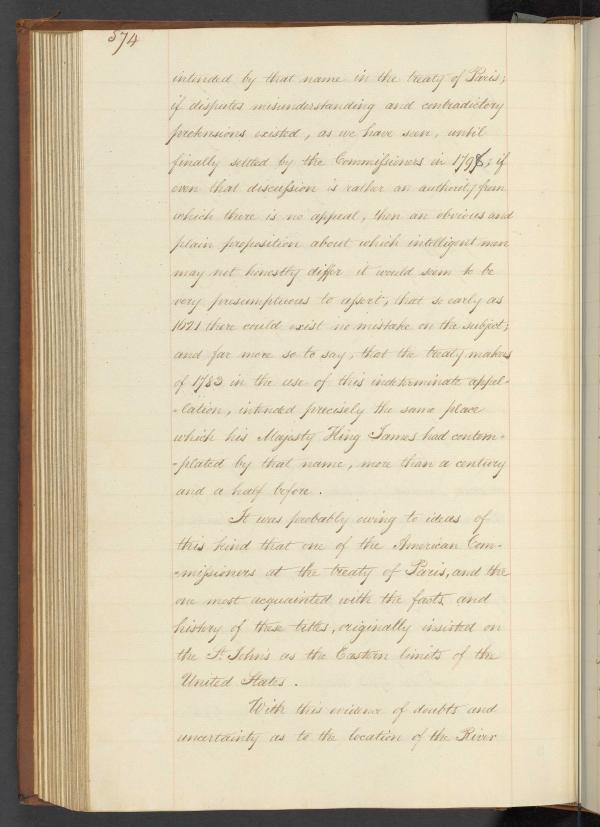 574
intended by that name in the treaty of Paris;
if disputes misunderstanding and contradictory
pretensions existed, as we have seen, until
finally settled by the Commissioners in 1798; if
even that discussion is rather an authority from
which there is no appeal, then an obvious and
plain proposition about which intelligent men
may not honestly differ it would seem to be
very presumptuous to assert, that so early as
1621 there could exist no mistake on the subject;
and far more so to say, that the treaty makers
of 1783 in the use of this indeterminate appel-
-lation, intended precisely the same place
which his Majesty King James had contem-
-plated by that name, more than a century
and a half before.
It was probably owing to ideas of
this kind that one of the American Com-
-missioners at the treaty of Paris, and the
one most acquainted with the facts and
history of these titles, originally insisted on
the St. John's as the Eastern limits of the
United States.
With this evidence of doubts and
uncertainty as to the location of the River